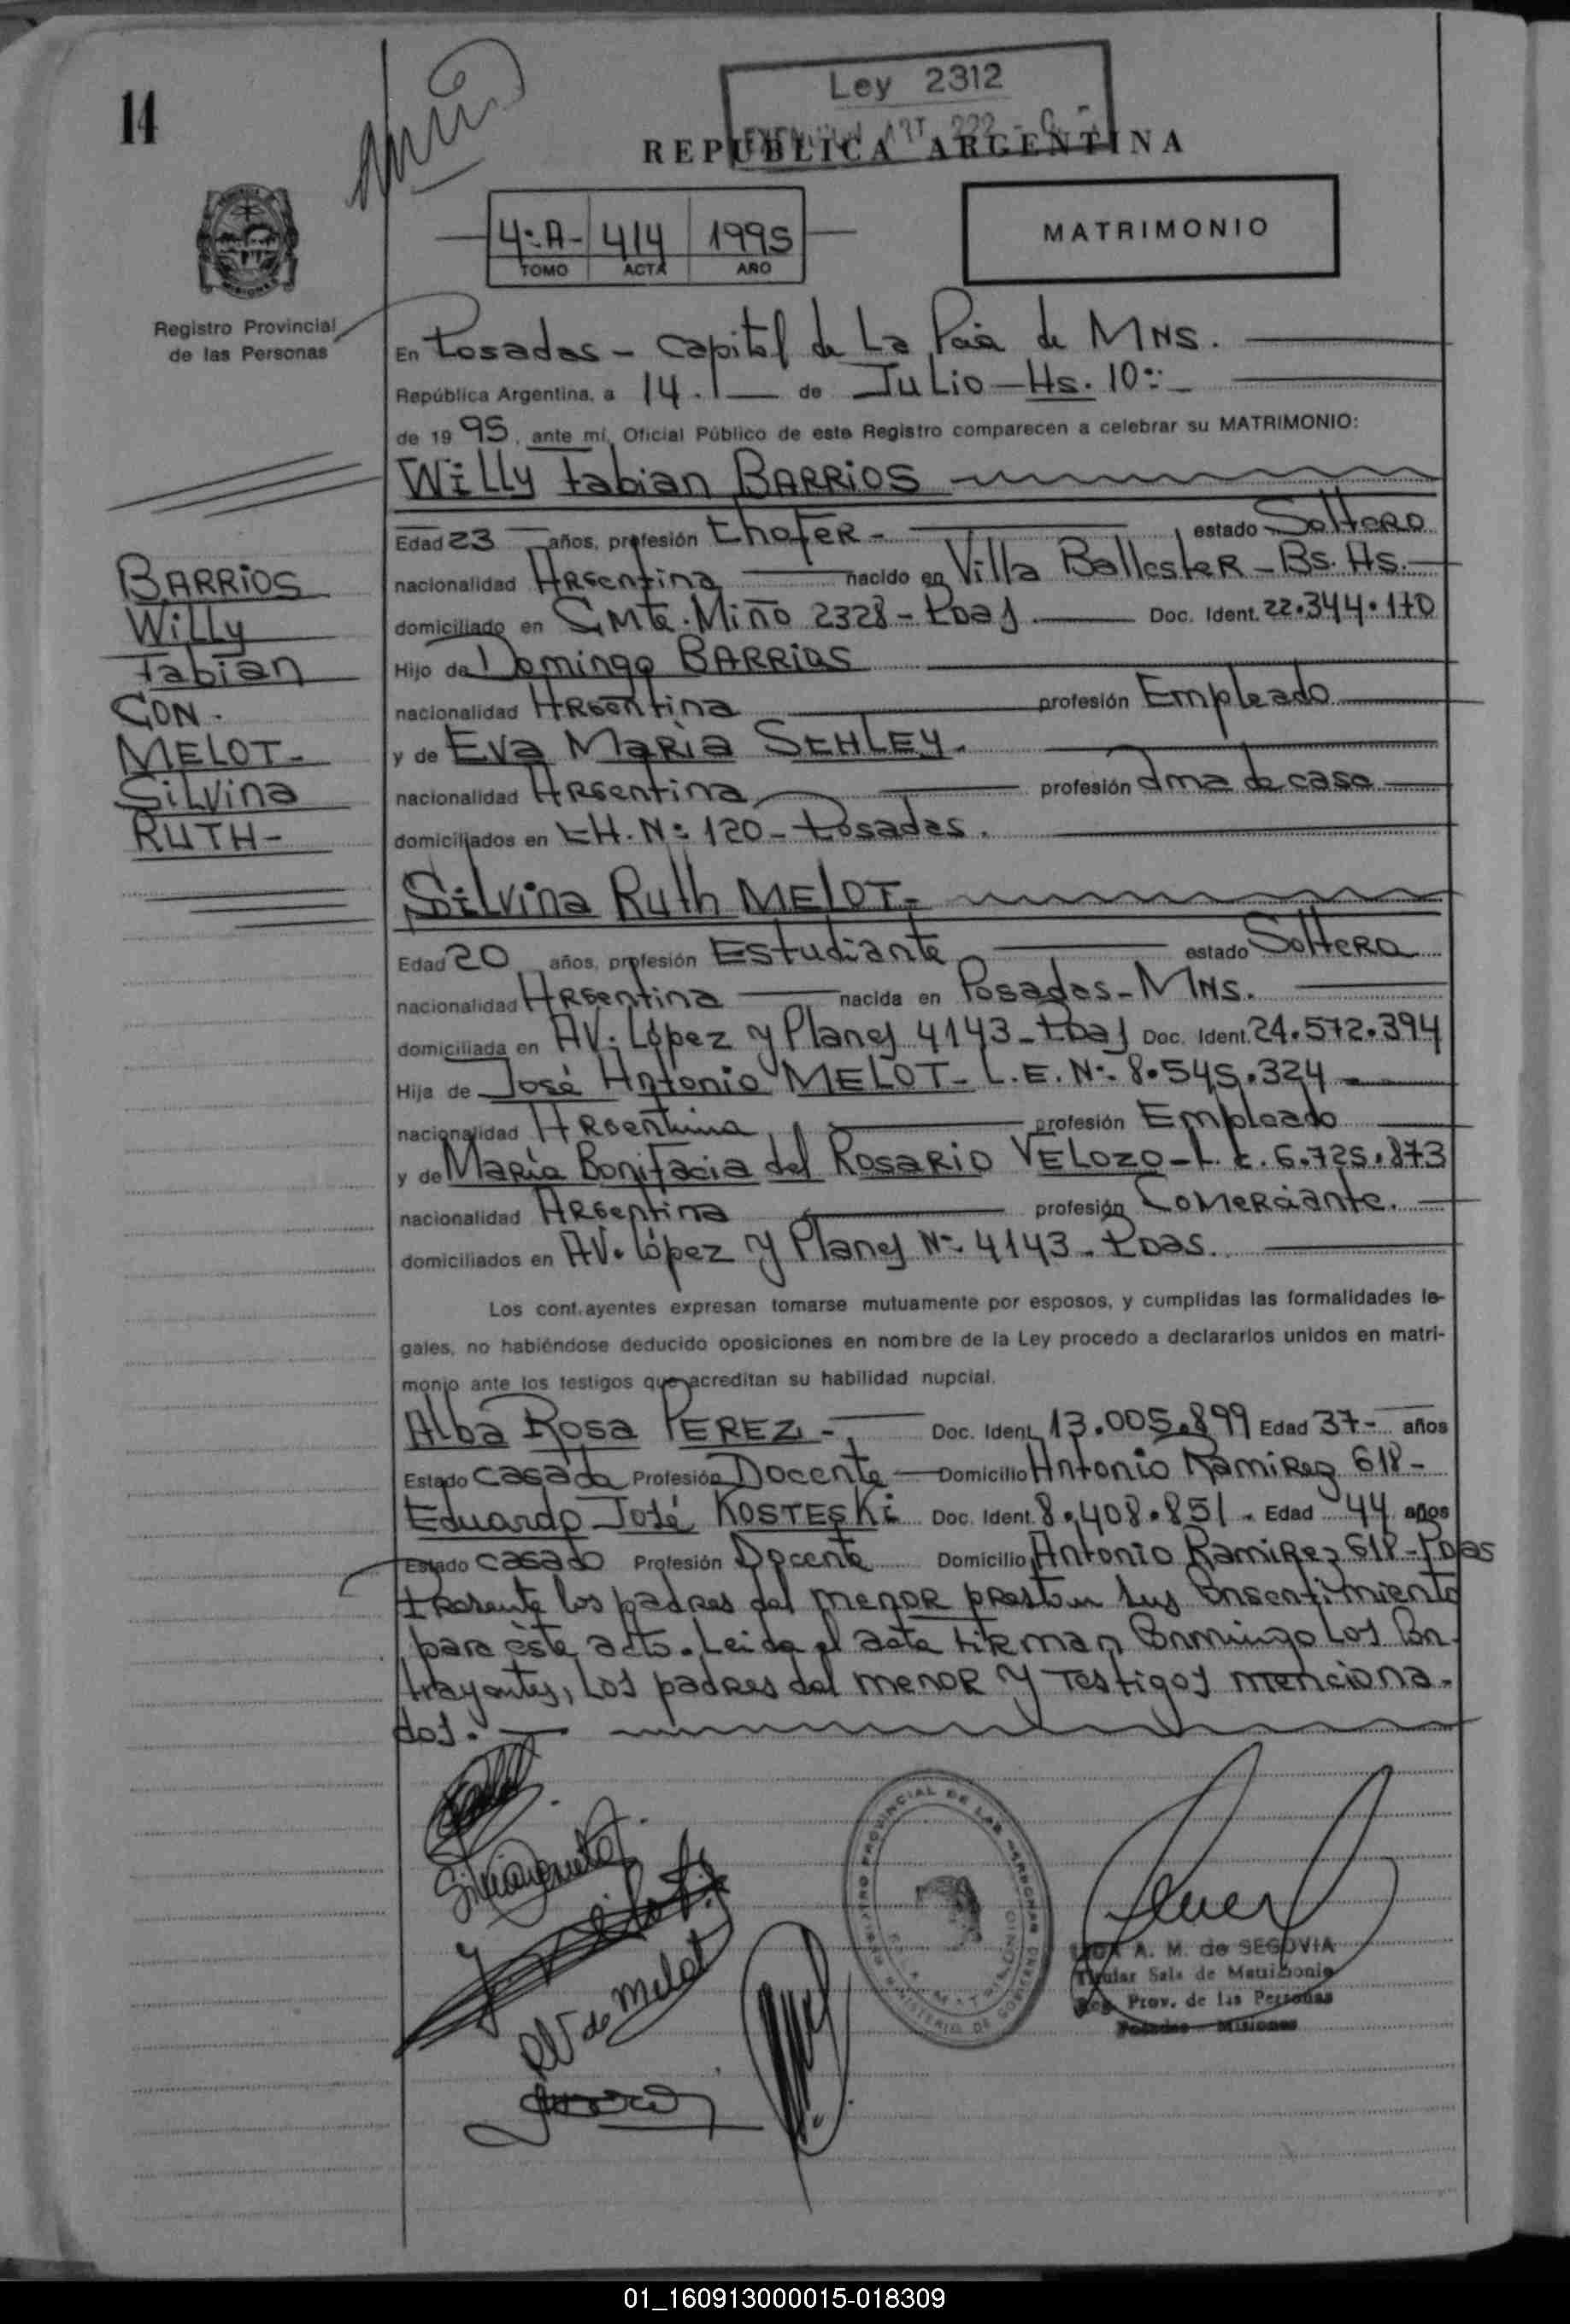 14
Ley 2312
ART 222
REPUBLICA ARGENTINA
4º A- 414 1995
TOMO ACTA AÑO
MATRIMONIO
MISIONES
Registro Provincial
de las Personas
En Posadas - Capital de La Pcia de MNS.
República Argentina, a 14.- de Julio - Hs. 10:-
de 1995, ante mí, Oficial Público de este Registro comparecen a celebrar su MATRIMONIO:
Willy Fabian BARRIOS
Edad 23 años, profesión Chofer - estado Soltero
nacionalidad Argentina nacido en Villa Ballester - Bs. As.
domiciliado en Cmte. Miño 2328 - Pdas Doc. Ident. 22.344.170
Hijo de Domingo BARRIOS
nacionalidad Argentina profesión Empleado
y de Eva Maria SCHLEY.
nacionalidad Argentina profesión Ama de casa
domiciliados en CH. Nº 120 - Posadas.
BARRIOS
Willy
Fabian
CON.
MELOT-
Silvina
RUTH-
Silvina Ruth MELOT-
Edad 20 años, profesión Estudiante estado Soltera
nacionalidad Argentina nacida en Posadas - MNS.
domiciliada en AV. López y Planes 4143 - Pdas Doc. Ident. 24.572.394
Hija de José Antonio MELOT - L.E. Nº 8.545.324
nacionalidad Argentina profesión Empleado
y de María Bonifacia del Rosario VELOZO - L.C. 6.725.873
nacionalidad Argentina profesión Comerciante.
domiciliados en AV. López y Planes Nº 4143 - Pdas.
Los cont.ayentes expresan tomarse mutuamente por esposos, y cumplidas las formalidades le-
gales, no habiéndose deducido oposiciones en nombre de la Ley procedo a declararlos unidos en matri-
monio ante los testigos que acreditan su habilidad nupcial.
Alba Rosa PEREZ - Doc. Ident. 13.005.899 Edad 37- años
Estado Casada Profesión Docente Domicilio Antonio Ramirez 618 -
Eduardo José KOSTESKI Doc. Ident. 8.408.851. Edad 44 años
Estado Casado Profesión Docente Domicilio Antonio Ramirez 618 - Pdas
Presente los padres del menor prestan sus consentimiento
para éste acto. Leida el acta firman conmingo Los con-
trayentes, Los padres del menor y Testigos menciona-
dos.
RV de Melot
REGISTRO PROVINCIAL DE LAS PERSONAS
MINISTERIO DE GOBIERNO
A. M. de SEGOVIA
Titular Sala de Matrimonio
Reg. Prov. de las Personas
Posadas - Misiones
01_160913000015-018309